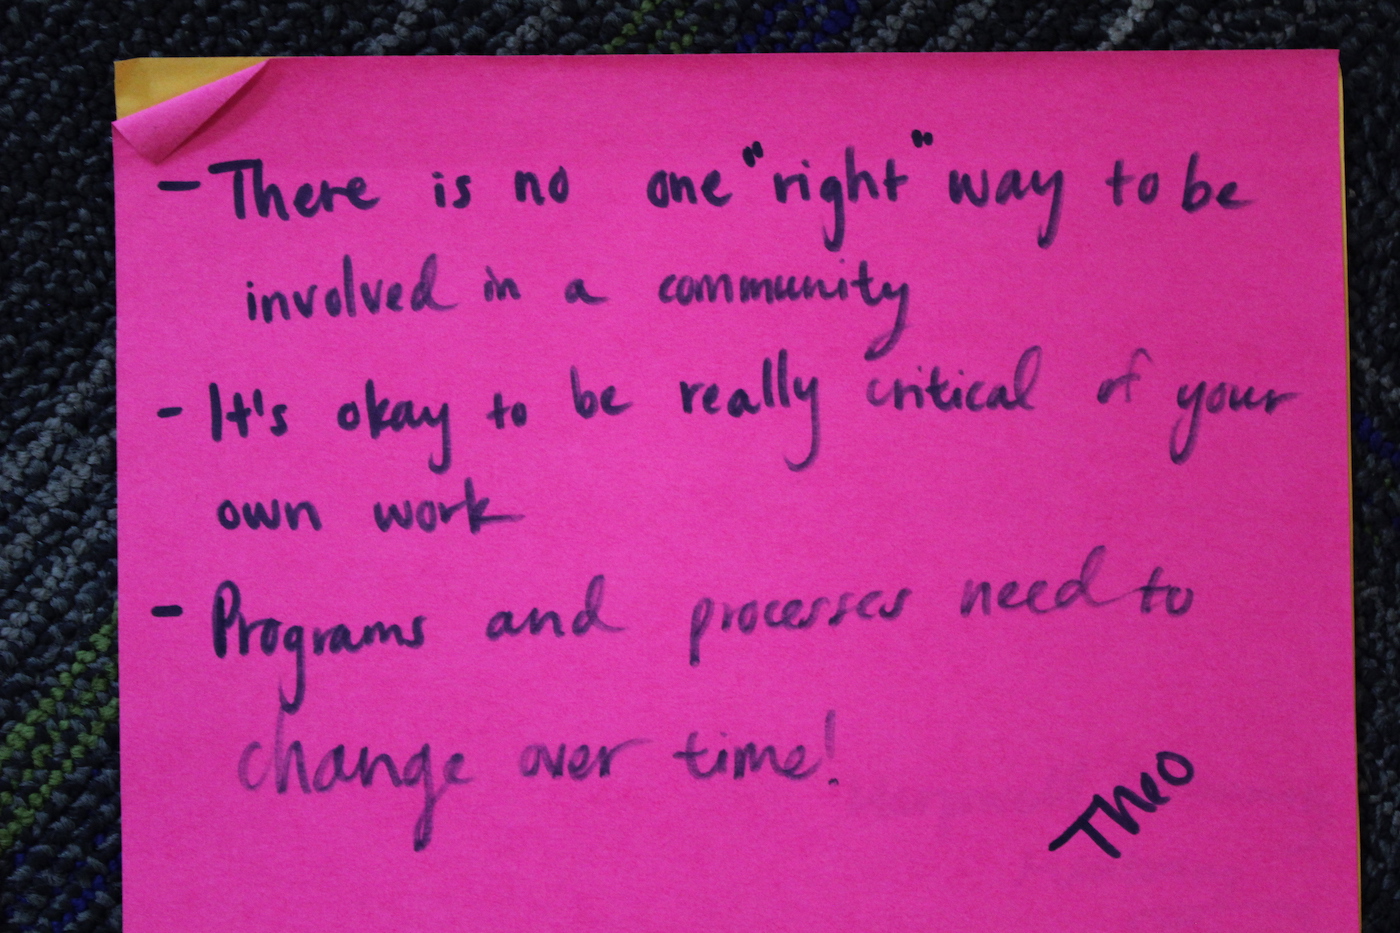 - There is no one "right" way to be
involved in a community
- It's okay to be really critical of your
own work
- Programs and processes need to
change over time!
Theo